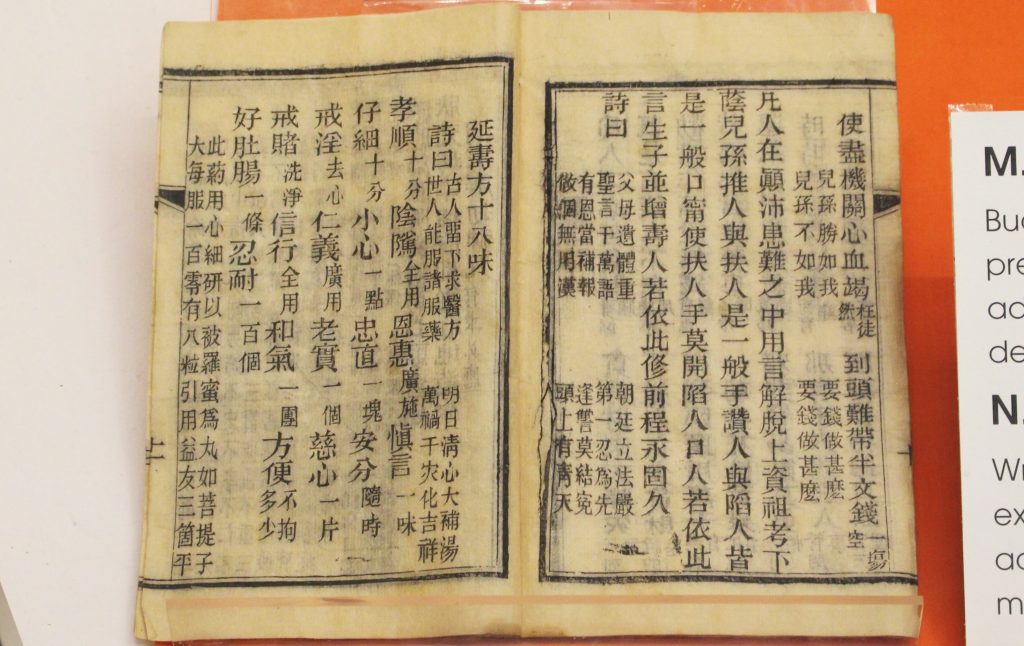 使盡機關心血竭枉徒然到頭難帶半文錢一場空
兒孫勝如我 要錢做甚麽
兒孫不如我 要錢做甚麽
凡人在顛沛患難之中用言解脫上資祖考下
蔭兒孫推人與扶人是一般手讚人與陷人皆
是一般口甯使扶人手莫開陷人口人若依此
言生子並增壽人若依此修前程永固久
詩曰
父母遺體重 朝廷立法嚴
聖言千萬語 第一忍爲先
有恩當補報 逢讐莫結寃
做個無用漢 頭上有青天
延壽方十八味
詩曰古人畱下求醫方 明日清心大補湯
世人能服諸服藥 萬禍千灾化吉祥
孝順十分陰隲全用恩惠廣施愼言一味
仔細十分小心一點忠直一塊安分隨時
戒淫去心仁義廣用老實一個慈心一片
戒賭洗淨信行全用和氣一團方便不拘多少
好肚腸一條忍耐一百個
此药用心細研以被羅蜜爲丸如菩提子
大每服一百零有八粒引用益友三箇平
M.
Buc
pre
ac
de
N.
Wr
ex
ac
m